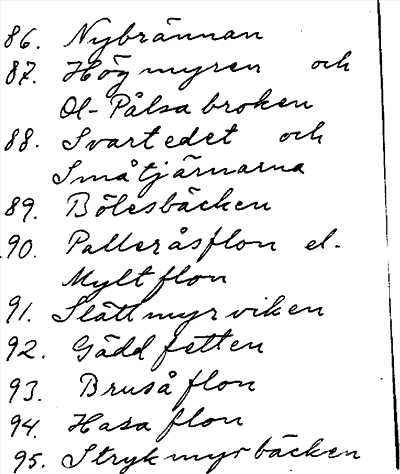 86. Nybrännan
87. Högmyren och
Ol-Pålsa broken
88. Svartedet och
Småtjärnarna
89. Bölesbäcken
90. Palleråsflon el.
Myltflon
91. Slåttmyrviken
92. Gäddfetten
93. Brusåflon
94. Hasaflon
95. Strykmyrbäcken